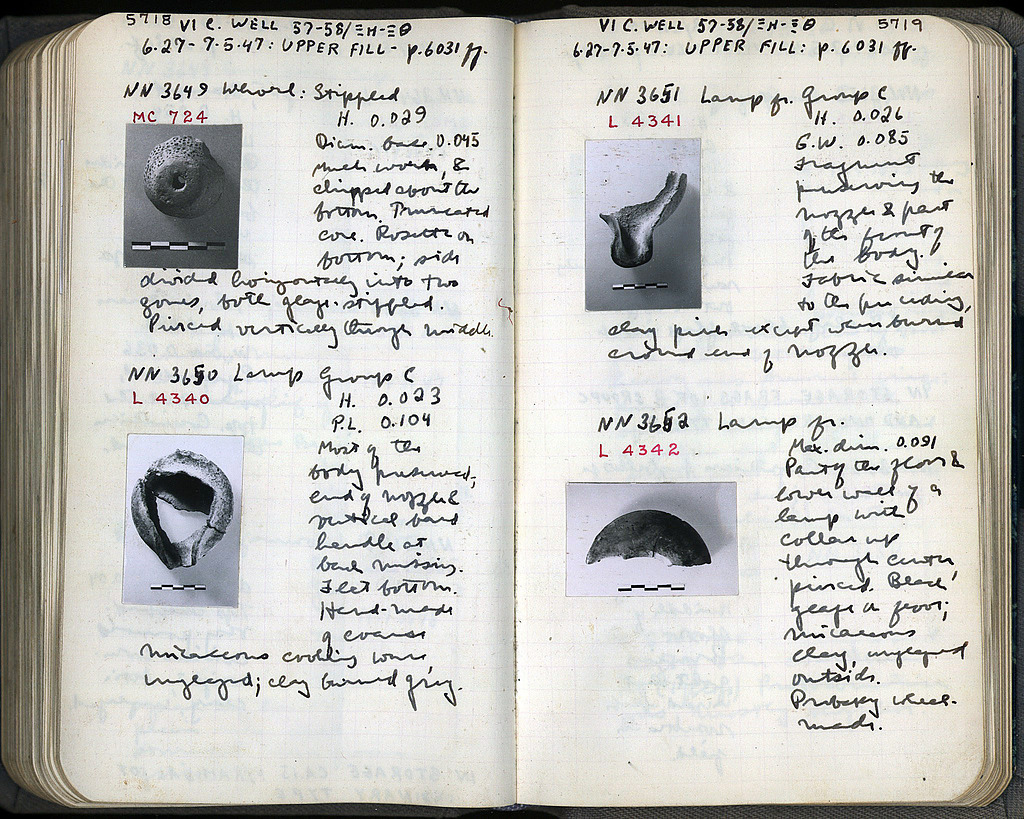 5718 VI C. WELL 57-58/ΞΗ-ΞΘ
6.27-7.5.47: UPPER FILL - p.6031 ff.
NN 3649 Whorl: Stippled
MC 724
H. 0.029
Diam. base, 0.045
Much worn, &
chipped about the
bottom. Truncated
cone. Rosette on
bottom; side
divided horizontally into two
zones, both glaze-stippled.
Pierced vertically through middle.
NN 3650 Lamp Group C
L 4340
H. 0.023
P.L. 0.104
Most of the
body preserved;
end of nozzle &
vertical band
handle at
back missing.
Flat bottom.
Hand-made
of coarse
micaceous cooking ware,
unglazed; clay burned gray.
VI C. WELL 57-58/ΞΗ-ΞΘ 5719
6.27-7.5.47: UPPER FILL: p.6031 ff.
NN 3651 Lamp fr. Group C
L 4341
H. 0.026
G.W. 0.085
Fragment
preserving the
nozzle & part
of the front of
the body.
Fabric similar
to the preceding,
clay finer except where burned
around end of nozzle.
NN 3652 Lamp fr.
L 4342
Max. dim. 0.091
Part of the floor &
lower wall of a
lamp with
collar up
through center,
pierced. Black
glaze on floor;
micaceous
clay, unglazed
outside.
Probably wheel-
made.